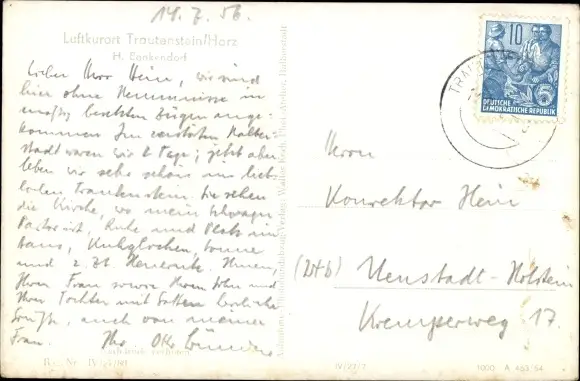 14.7.56.
Luftkurort Trautenstein/Harz
H. Bankendorf
Lieber Herr Hein, wir sind
hier ohne Hemmnisse in
mäßig besetzten Zügen ange-
kommen. Im zerstörten Halber-
stadt waren wir 2 Tage; jetzt aber
leben wir sehr schön im lieb-
lichen Trautenstein. Sie sehen
die Kirche, wo mein Schwager
Pastor ist. Ruhe und Platz im
Haus, Kuhglocken, Sonne
und z. Zt. Heuernte. Ihnen,
Ihrer Frau sowie Ihrem Sohn und
Ihrer Tochter mit Gatten herzliche
Grüße, auch von meiner
Frau. Ihr Otto
Nachdruck verboten
10
DEUTSCHE
DEMOKRATISCHE REPUBLIK
Herrn
Konrektor Hein
(24b) Neustadt-Holstein
Kremperweg 17.
IV/27/1
1000 A 463/54